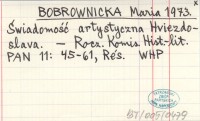 BOBROWNICKA Maria 1973.
Świadomość artystyczna Hviezdo-
slava. – Rocz. Komis. Hist.-lit.
PAN 11: 45-61, Rés. WHP